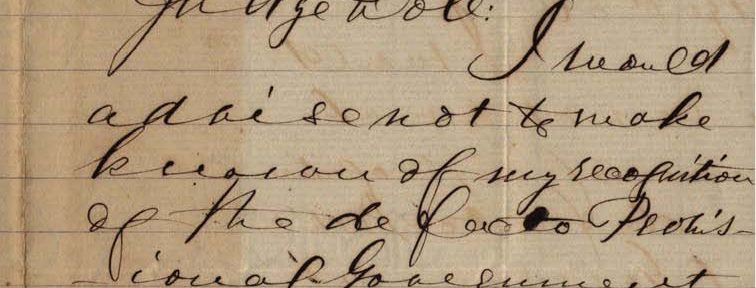 Judge Dole:
I would
advise not to make
known of my recognition
of the de facto Provis-
-ional Government